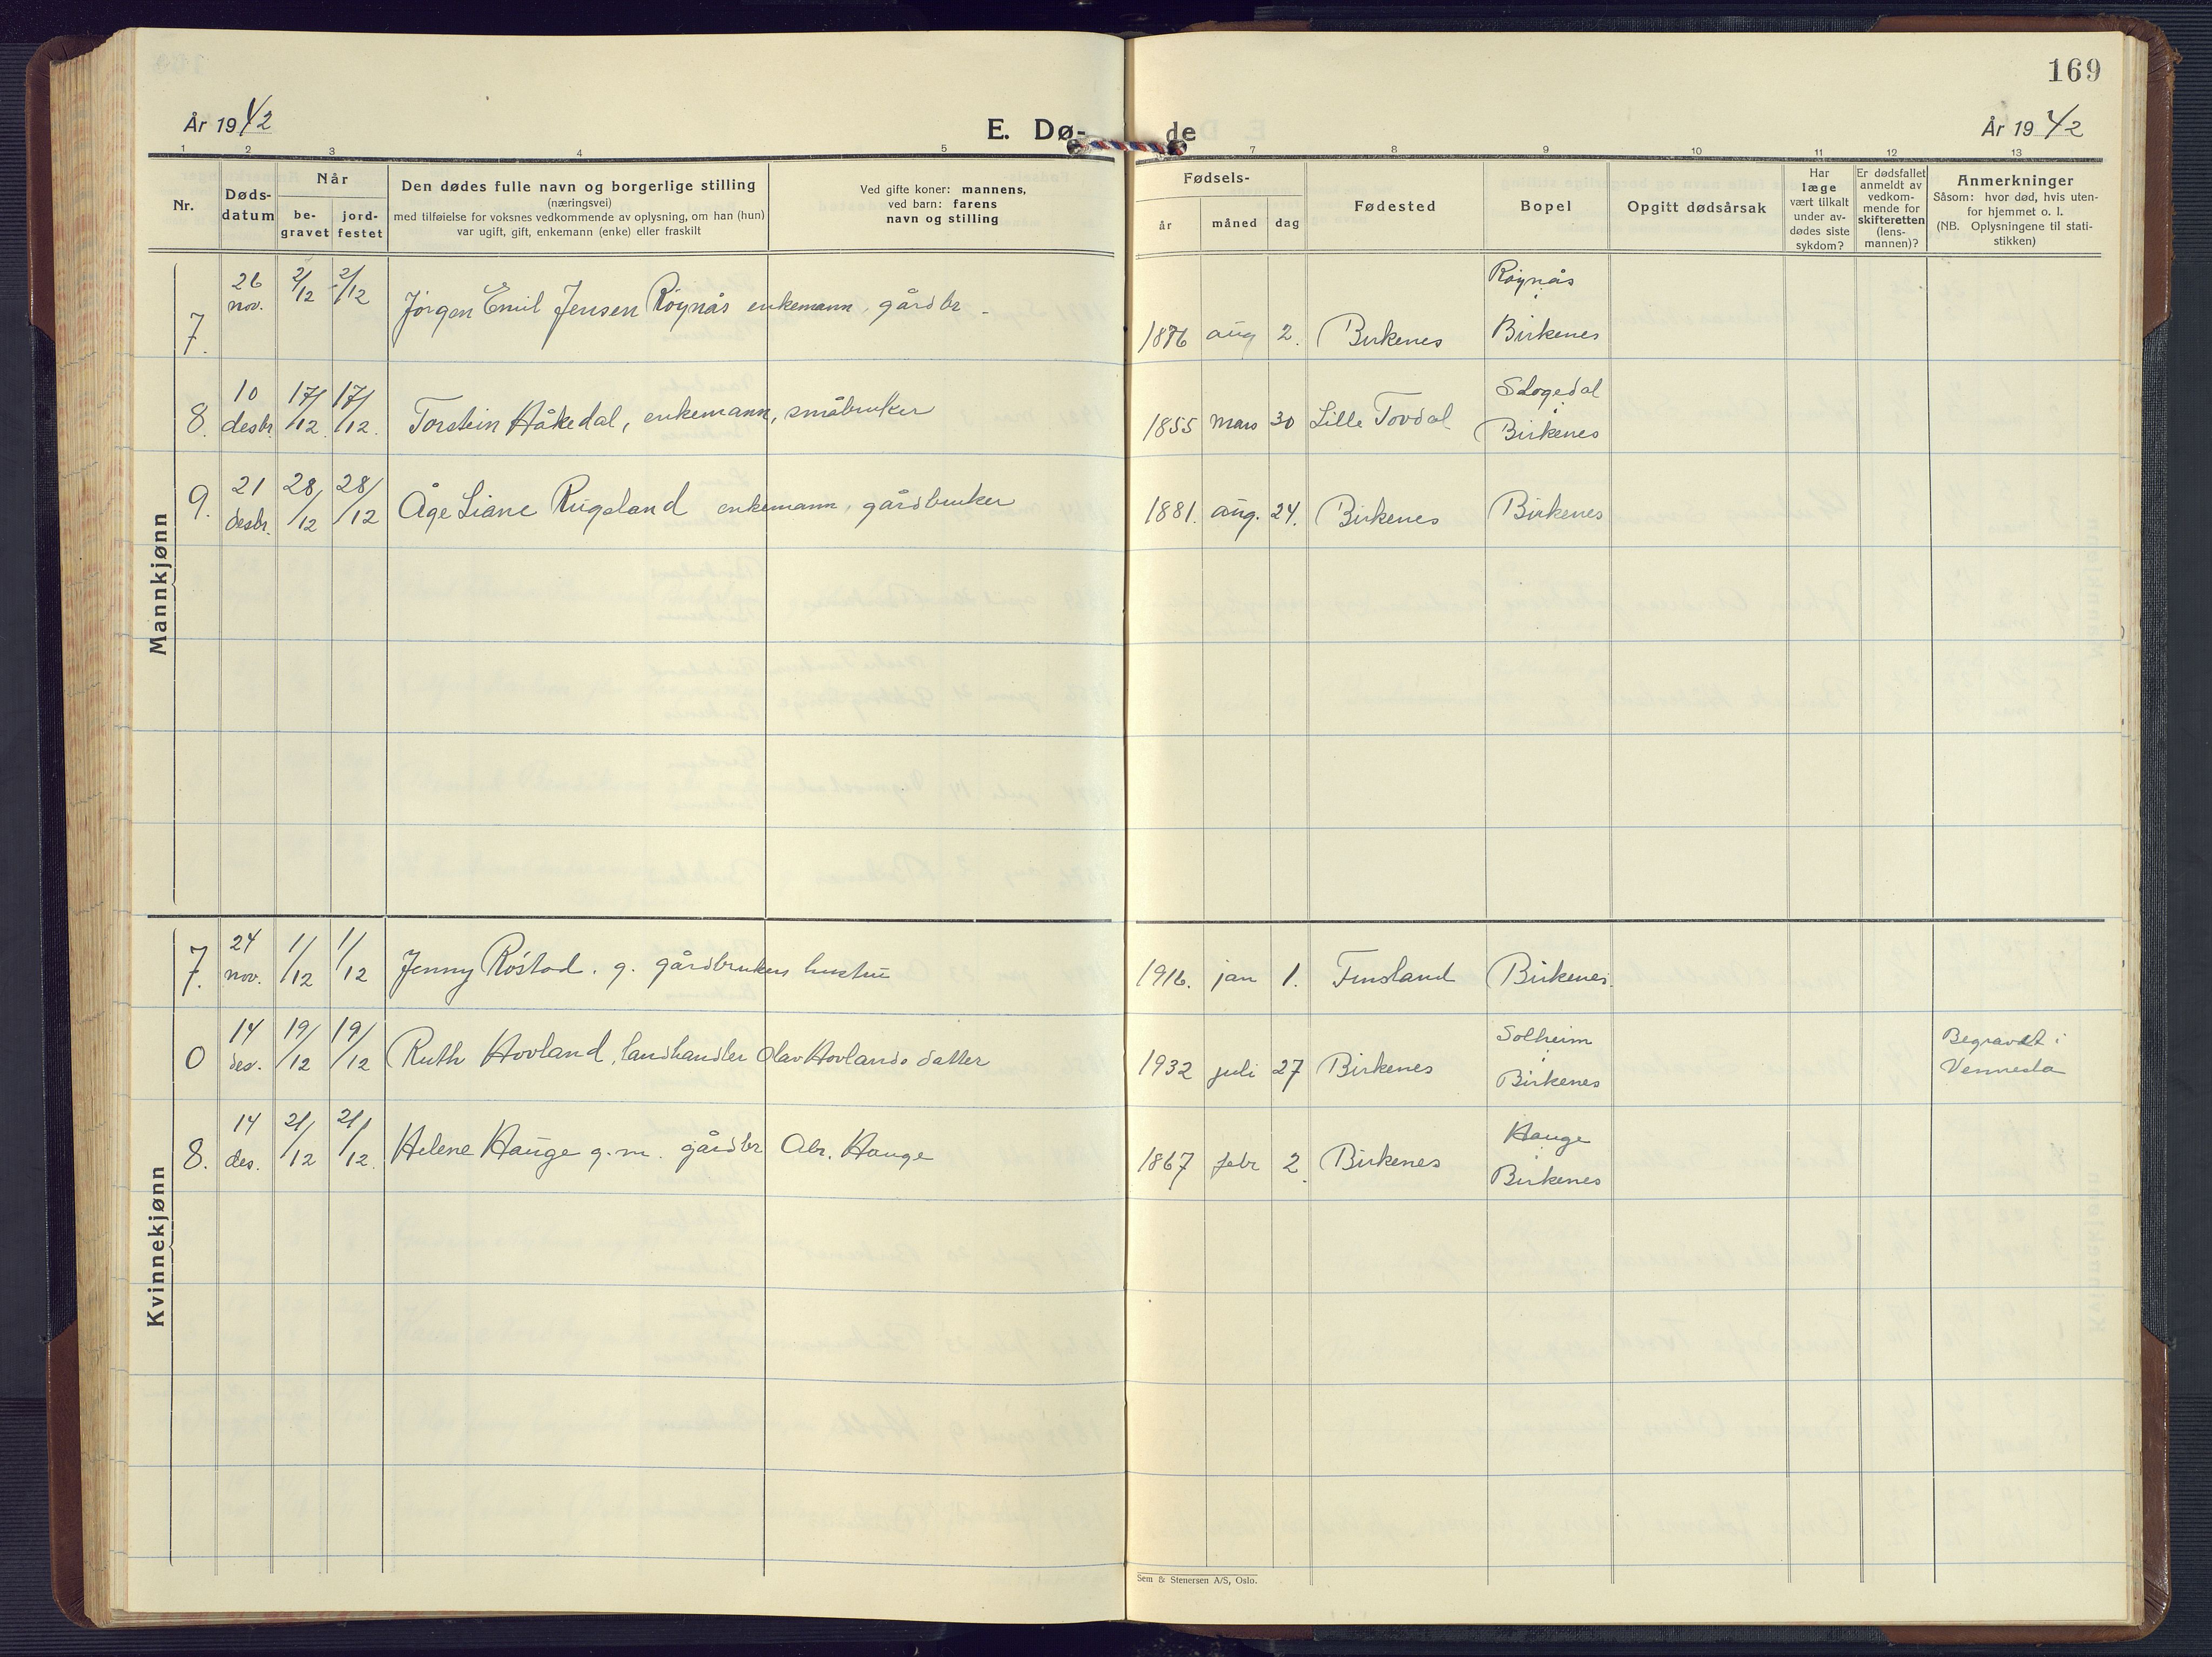 169
År 1942
E. Dø-
de
År 1942
1 2 3 4 5 7 8 9 10 11 12 13
Nr.
Døds-
datum
Når
be-
gravet
jord-
festet
Den dødes fulle navn og borgerlige stilling
(næringsvei)
med tilføielse for voksnes vedkommende av oplysning, om han (hun)
var ugift, gift, enkemann (enke) eller fraskilt
Ved gifte koner: mannens,
ved barn: farens
navn og stilling
Fødsels-
år måned dag
Fødested
Bopel
Opgitt dødsårsak
Har
læge
vært tilkalt
under av-
dødes siste
sykdom?
Er dødsfallet
anmeldt av
vedkom-
mende for
skifteretten
(lens-
mannen)?
Anmerkninger
Såsom: hvor død, hvis uten-
for hjemmet o. l.
(NB. Oplysningene til stati-
stikken)
Mannkjønn
7. 26 nov. 2/12 2/12 Jørgen Emil Jensen Røynås enkemann, gårdbr. 1876 aug 2. Birkenes Røynås, Birkenes
8. 10 desbr. 17/12 17/12. Torstein Håkedal, enkemann, småbruker 1855 mars 30 Lille Tovdal Birkenes
9. 21 desbr. 28/12 28/12 Åge Liane Rugsland enkemann, gårdbruker 1881. aug. 24. Birkenes Birkenes
Kvinnekjønn
7. 24 nov. 1/12 1/12 Jenny Røstad. g. gårdbrukers hustru 1916. jan 1. Finsland Birkenes.
0 14 des. 19/12 19/12 Ruth Hovland, landhandler Olav Hovlands datter 1932 juli 27 Birkenes Solheim, Birkenes Begravet i Vennesla
8. 14 des. 21/12 21/12. Helene Hauge g.m. gårdbr Abr. Hauge 1867 febr 2. Birkenes Hauge, Birkenes
Sem & Stenersen A/S, Oslo.